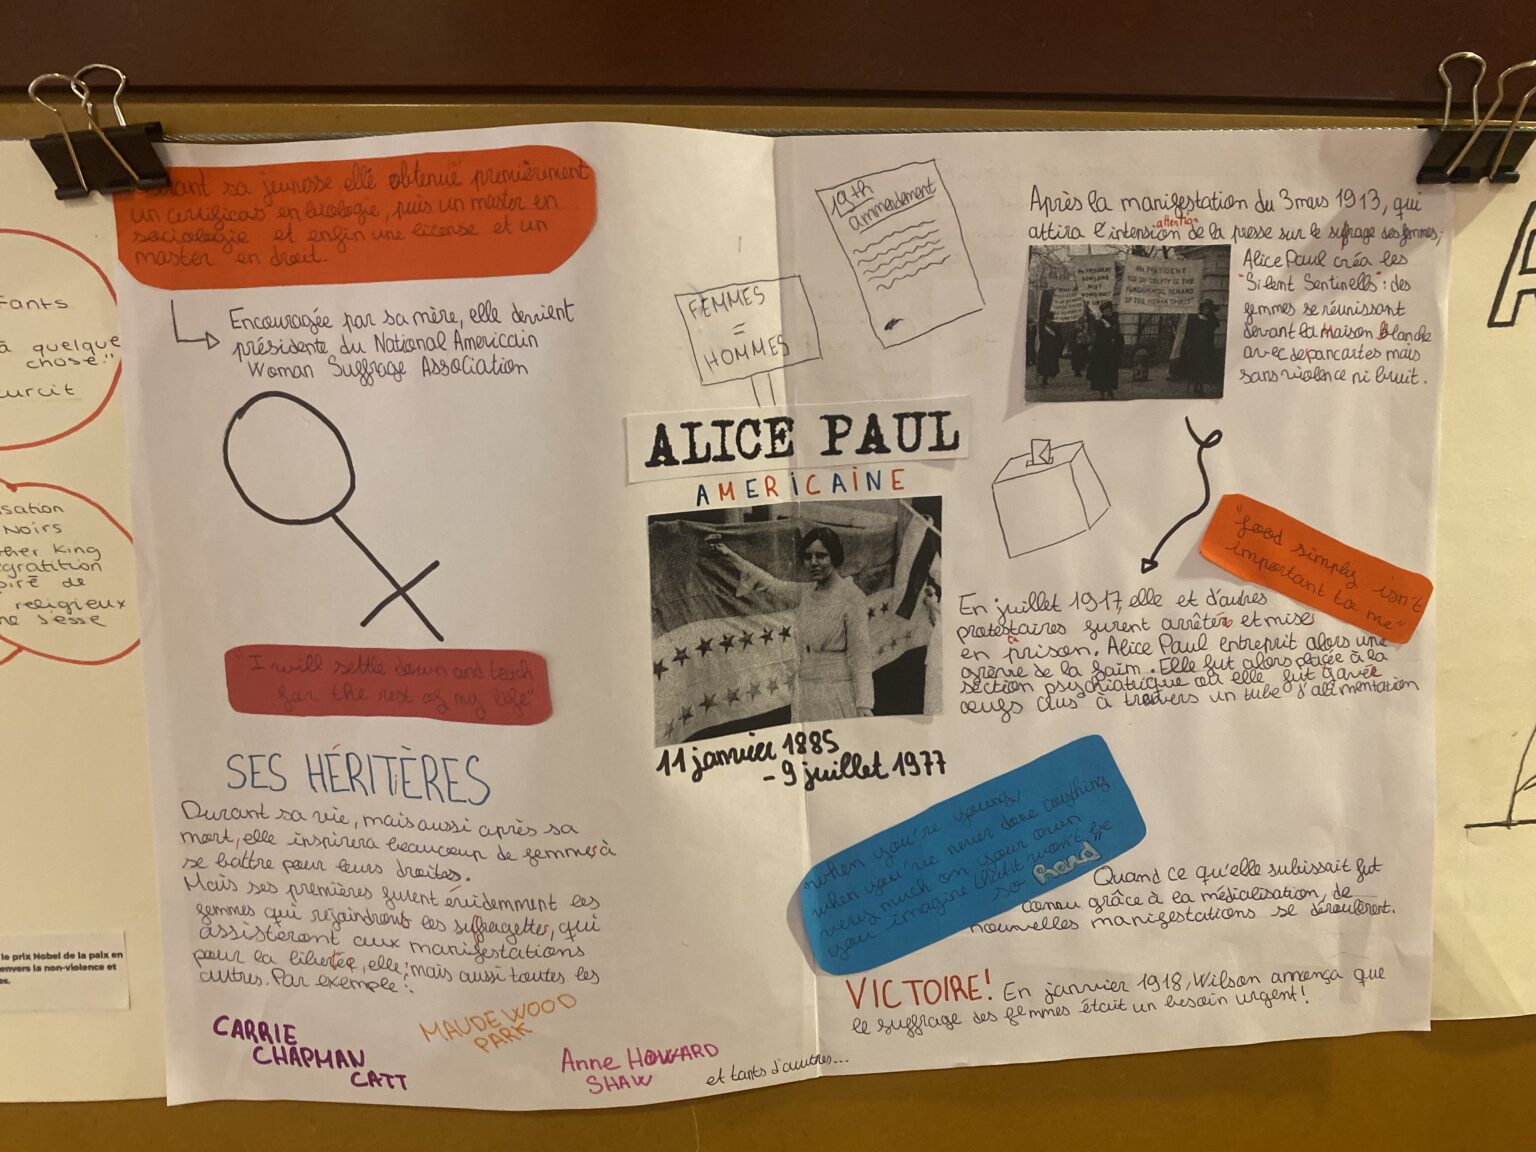 sa jeunesse elle obtenue premièrement
un certificas en biologie, puis un master en
sociologie et enfin une license et un
master en droit.
Encouragée par sa mère, elle devient
présidente du National Americain
Woman Suffrage Association
"I will settle down and teach
for the rest of my life"
SES HÉRITÈRES
Durant sa vie, mais aussi après sa
mort, elle inspirera beaucoup de femmes à
se battre pour leurs droites.
Mais ses premières furent évidemment les
femmes qui rejoindront les suffragettes, qui
assistèront aux manifestations
pour la liberté, elle, mais aussi toutes les
autres. Par exemple :
CARRIE
CHAPMAN
CATT
MAUDE WOOD
PARK
Anne HOWARD
SHAW
et tants d'autres...
FEMMES
=
HOMMES
19th
ammendement
ALICE PAUL
AMERICAINE
11 janvier 1885
- 9 juillet 1977
Après la manifestation du 3 mars 1913, qui
attention
attira l'intension de la presse sur le sufrage des femmes,
Alice Paul créa les
"Silent Sentinells" : des
femmes se réunissant
devant la Maison Blanche
avec de pancartes mais
sans violence ni bruit.
"food simply isn't
important to me"
En juillet 1917, elle et d'autres
protestaires furent arrêtés et mises
en prison. Alice Paul entreprit alors une
grève de la faim. Elle fut alors placée à la
section psychiatrique où elle fut gavée
œufs crus à travers un tube d'alimentation
"when you're young,
when you've never done anything
very much on your own
you imagine that it won't be
so hard"
Quand ce qu'elle subissait fut
connu grâce à la médialisation, de
nouvelles manifestations se déroulèrent.
VICTOIRE! En janvier 1918, Wilson annonça que
le suffrage des femmes était un besoin urgent!
à quelque
chose."
urcit
sation
Noirs
ther King
religieux
le prix Nobel de la paix en
envers la non-violence et